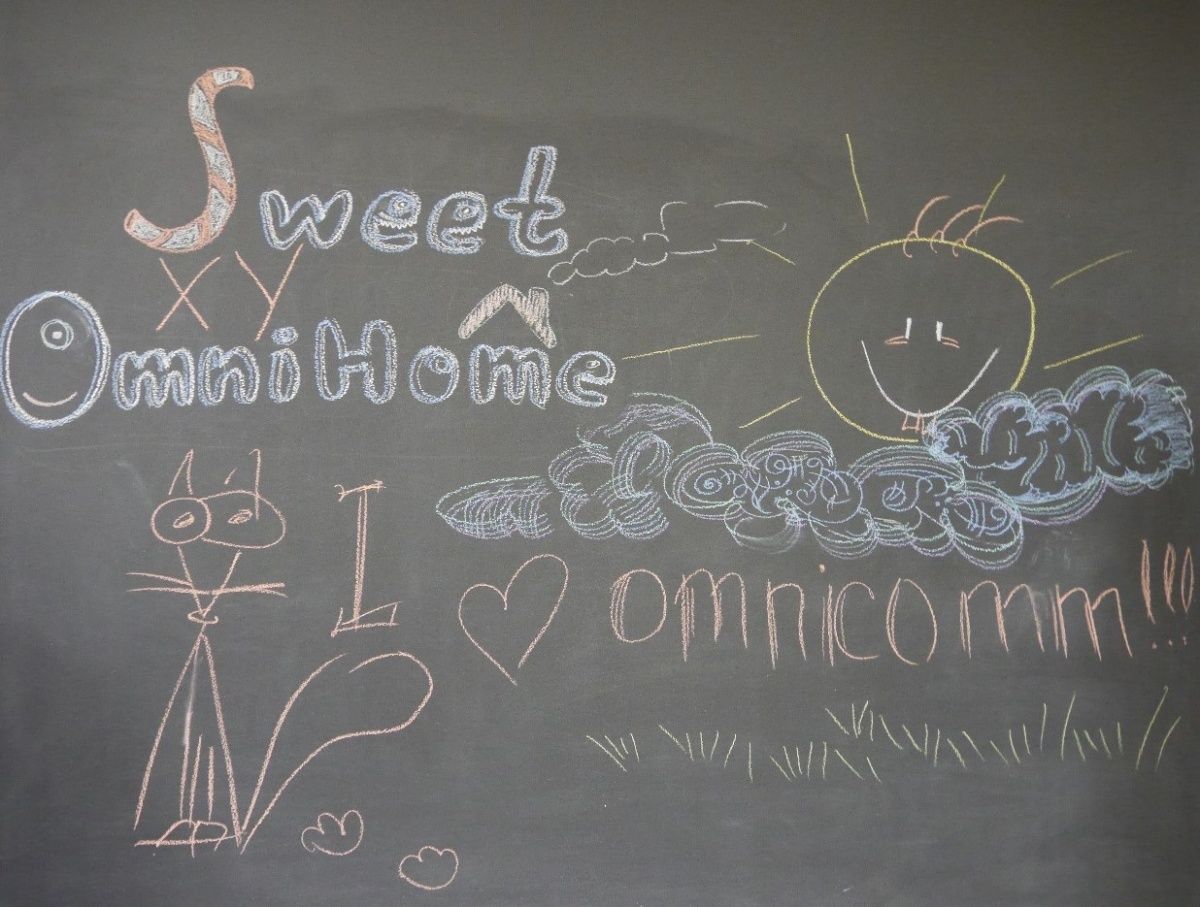 Sweet
XY
OmniHome
I ♥ omnicomm!!!